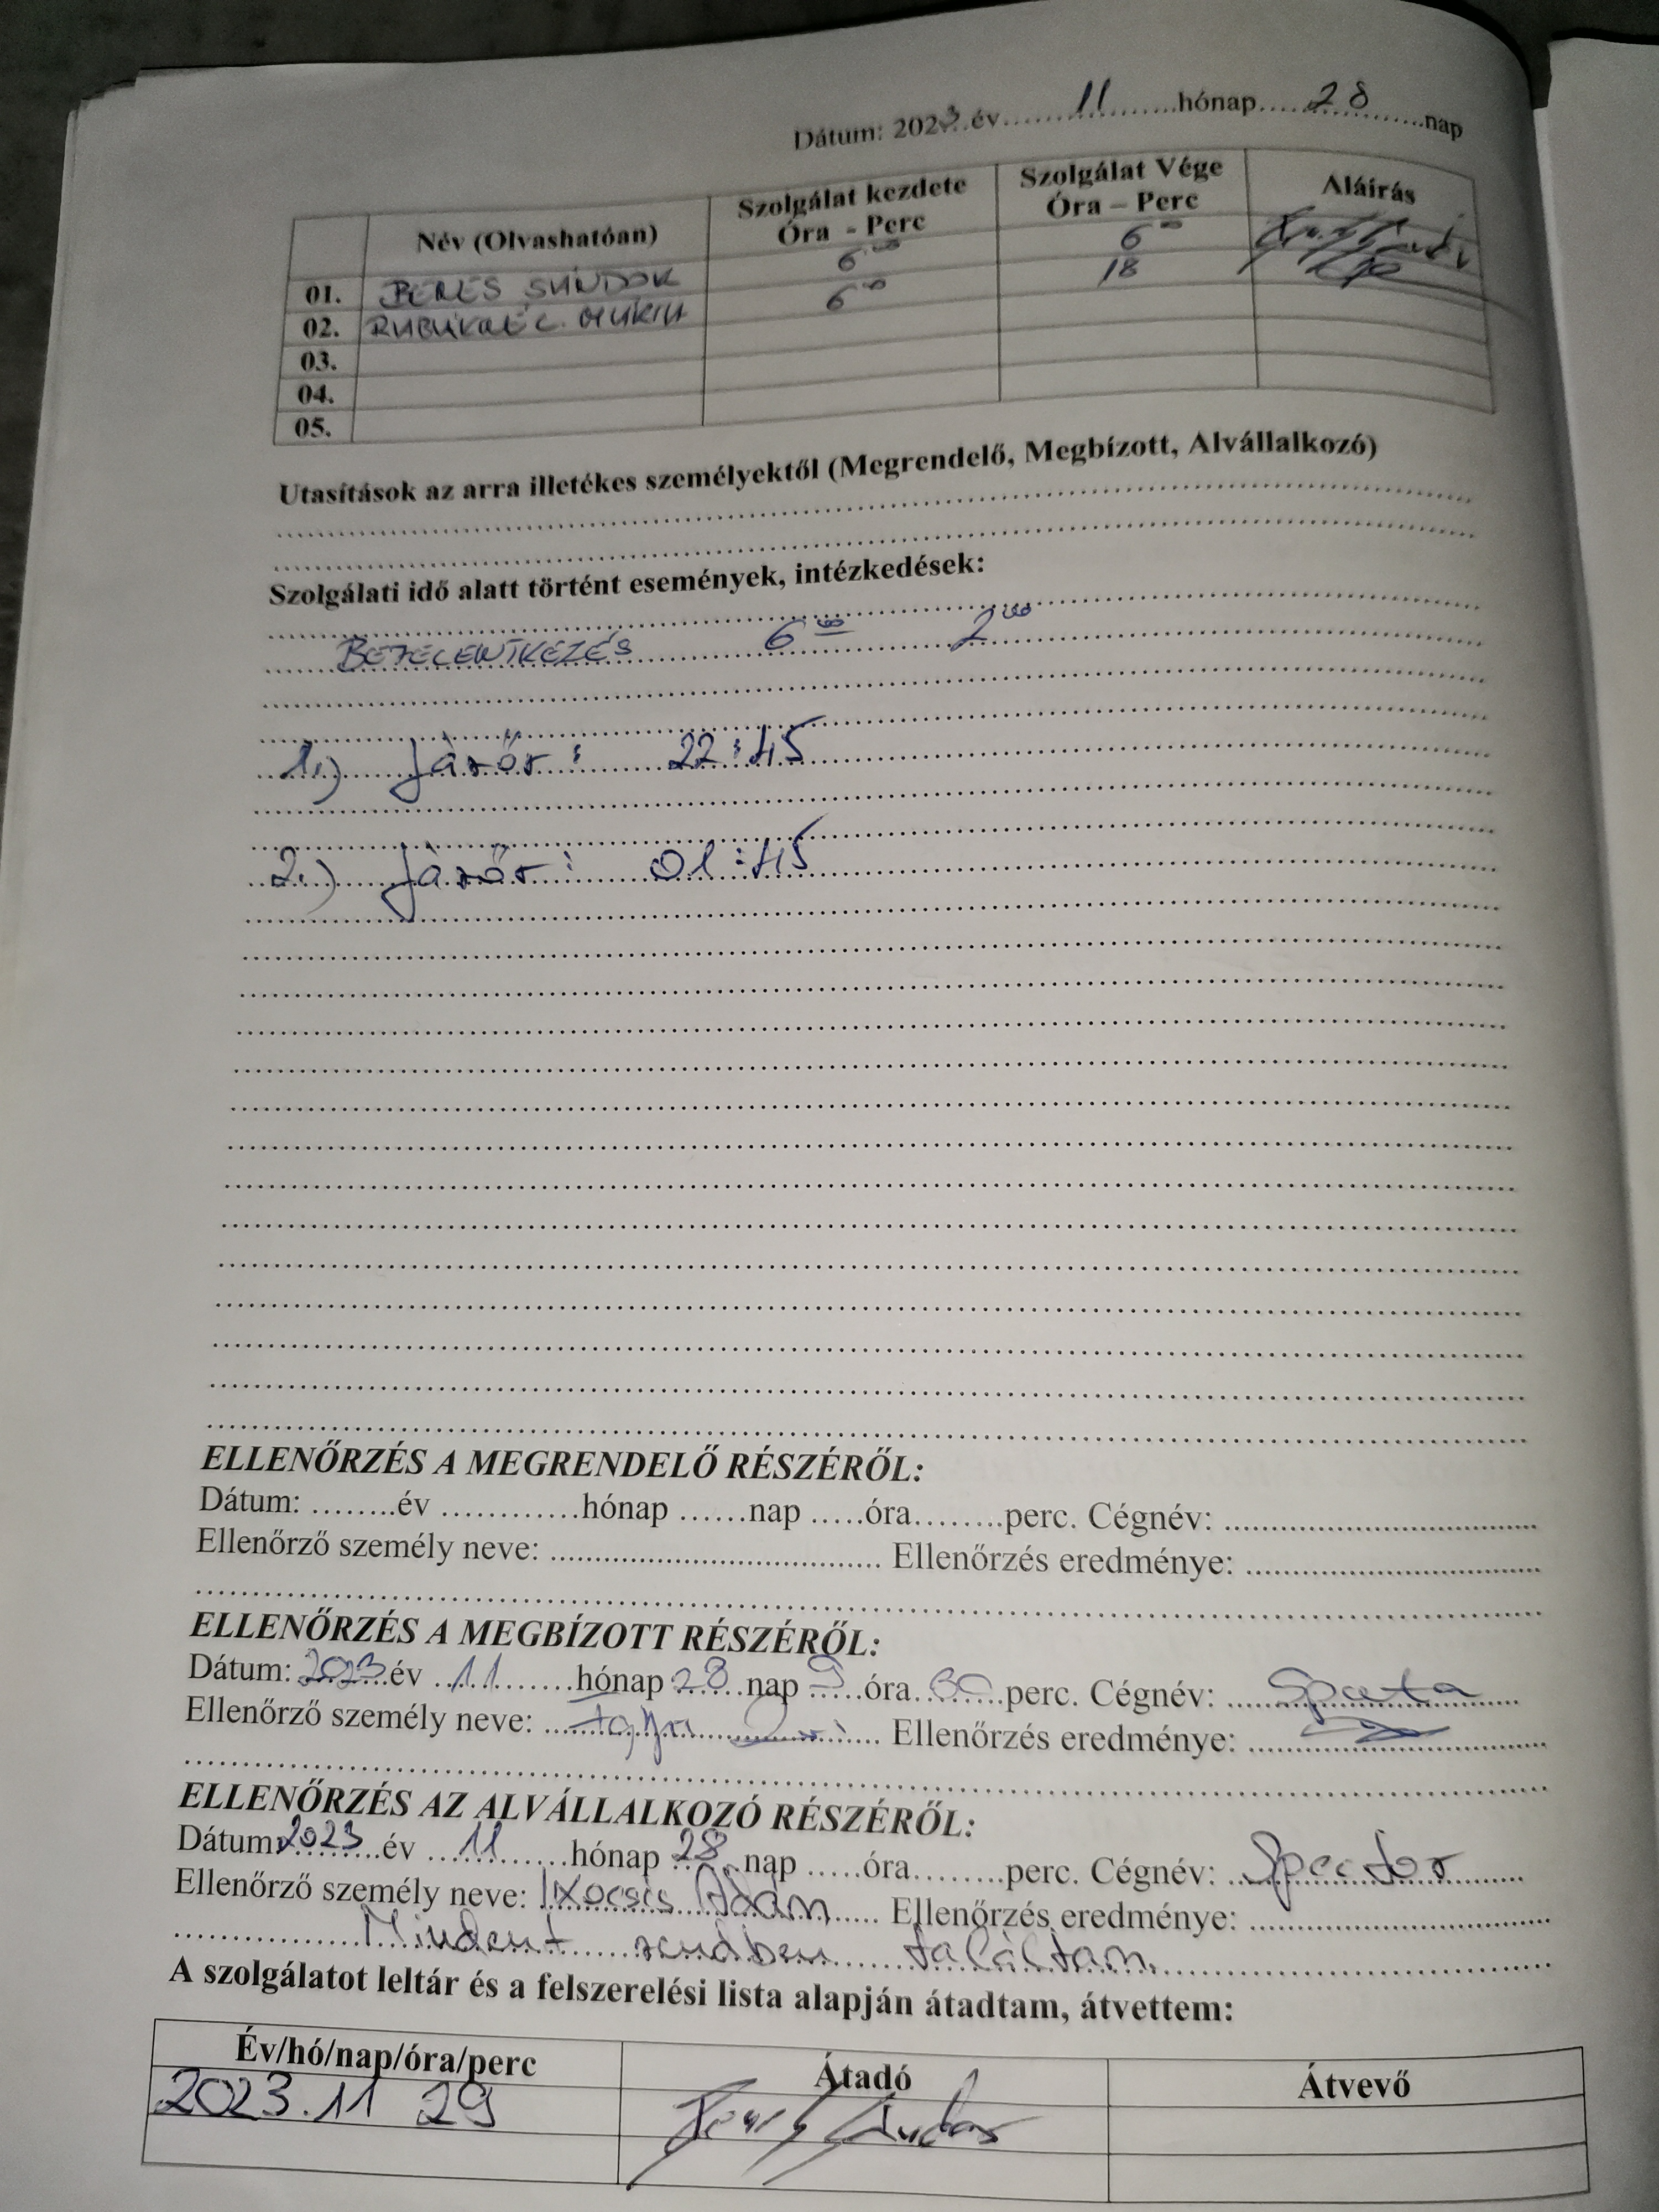 Dátum: 2023 év 11 hónap 28 nap
Név (Olvashatóan) Szolgálat kezdete Óra - Perc Szolgálat Vége Óra – Perc Aláírás
01. BERES SÁNDOR 6 00 6 00
02. 6 00 18
03.
04.
05.
Utasítások az arra illetékes személyektől (Megrendelő, Megbízott, Alvállalkozó)
Szolgálati idő alatt történt események, intézkedések:
BEJELENTKEZÉS 6 00 2 00
1.) Járőr: 22:45
2.) Járőr: 01:45
ELLENŐRZÉS A MEGRENDELŐ RÉSZÉRŐL:
Dátum: ........év ............hónap ......nap .....óra........perc. Cégnév: ....................
Ellenőrző személy neve: .................... Ellenőrzés eredménye: ....................
ELLENŐRZÉS A MEGBÍZOTT RÉSZÉRŐL:
Dátum: 2023 év 11 hónap 28 nap 9 óra 30 perc. Cégnév: Sparta
Ellenőrző személy neve: Ellenőrzés eredménye:
ELLENŐRZÉS AZ ALVÁLLALKOZÓ RÉSZÉRŐL:
Dátum: 2023 év 11 hónap 28 nap .....óra........perc. Cégnév: Spector
Ellenőrző személy neve: Kocsis Ádám Ellenőrzés eredménye:
Mindent rendben találtam.
A szolgálatot leltár és a felszerelési lista alapján átadtam, átvettem:
Év/hó/nap/óra/perc Átadó Átvevő
2023.11 29